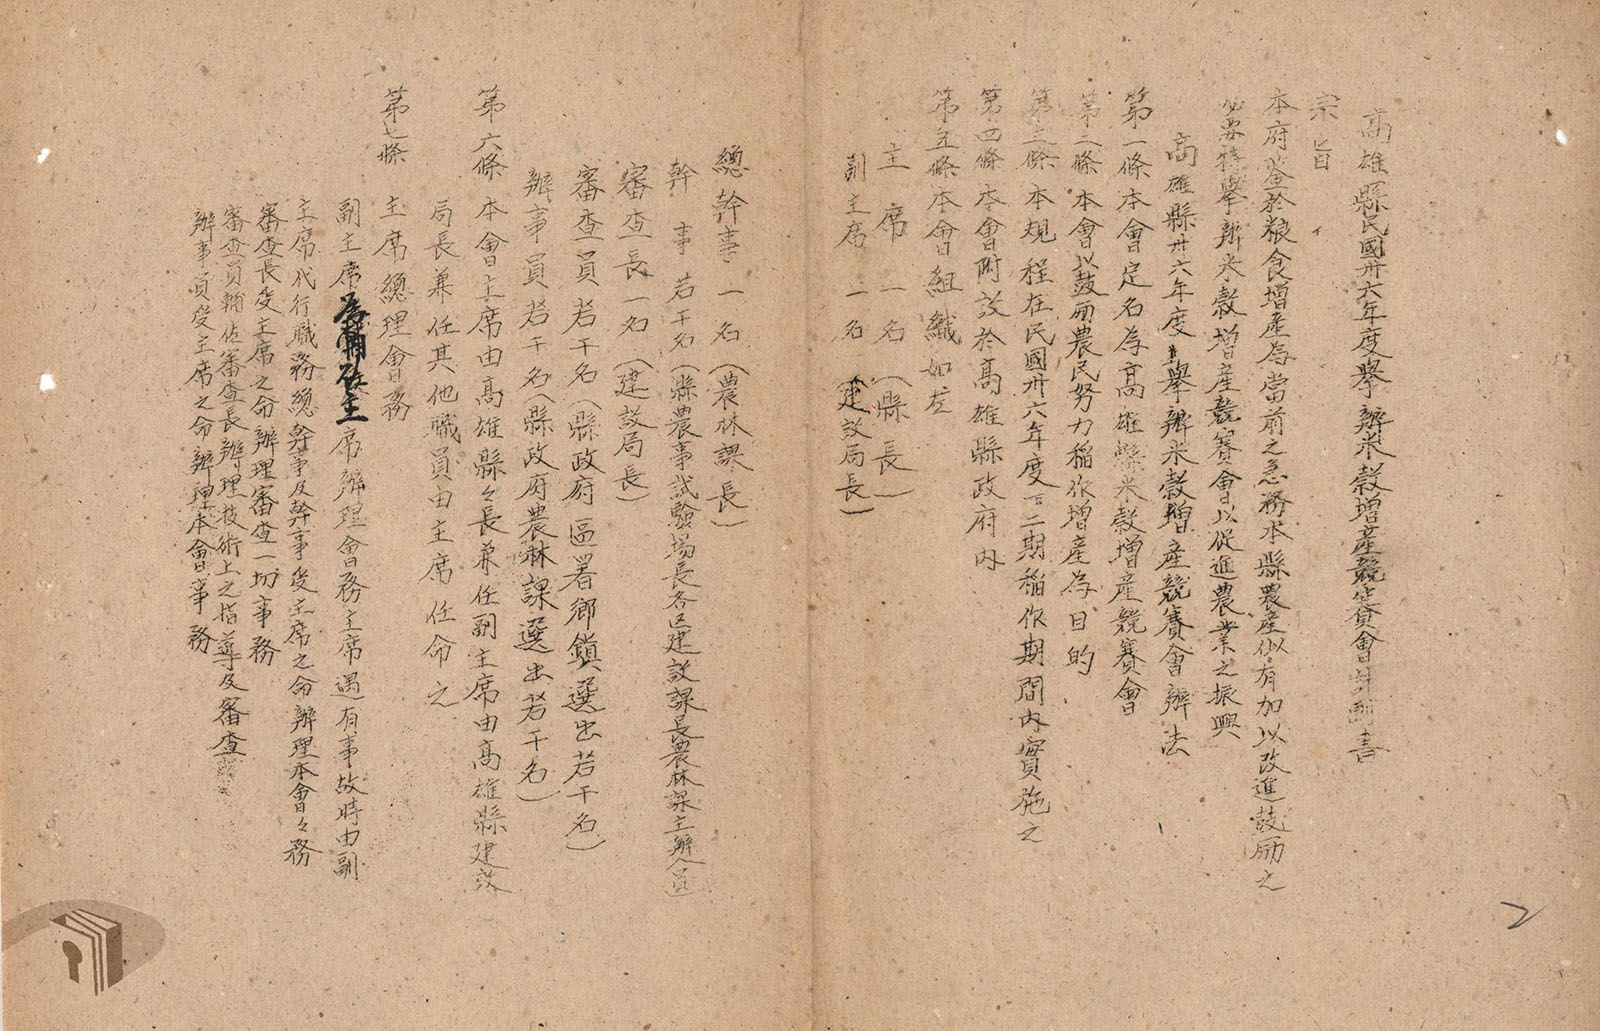 高雄縣民國卅六年度舉辦米穀增產競賽會計劃書
宗旨
本府鑒於粮食增產為當前之急務本縣農產似有加以改進鼓励之
必要特舉辦米穀增產競賽會以促進農業之振興
高雄縣卅六年度舉辦米穀增產競賽會辦法
第一條本會定名為高雄縣米穀增產競賽會
第二條本會以鼓励農民努力稲作增產為目的
第三條本規程在民國卅六年度一二期稲作期間內實施之
第四條本會附設於高雄縣政府內
第五條本會組織如左
主席一名(縣長)
副主席一名(建設局長)
總幹事一名(農林課長)
幹事若干名(縣農事試驗場長各区建設課長農林課主辦人員)
審查長一名(建設局長)
審查員若干名(縣政府區署鄉鎮選出若干名)
辦事員若干名(縣政府農林課選出若干名)
第六條本會主席由高雄縣々長兼任副主席由高雄縣建設
局長兼任其他職員由主席任命之
第七條 主席總理會務
副主席 席辦理會務主席遇有事故時由副
主席代行職務總幹事及幹事受主席之命辦理本會々務
審查長受主席之命辦理審查一切事務
審查員輔佐審查長辦理技術上之指導及審查
辦事員受主席之命辦理本會事務
2